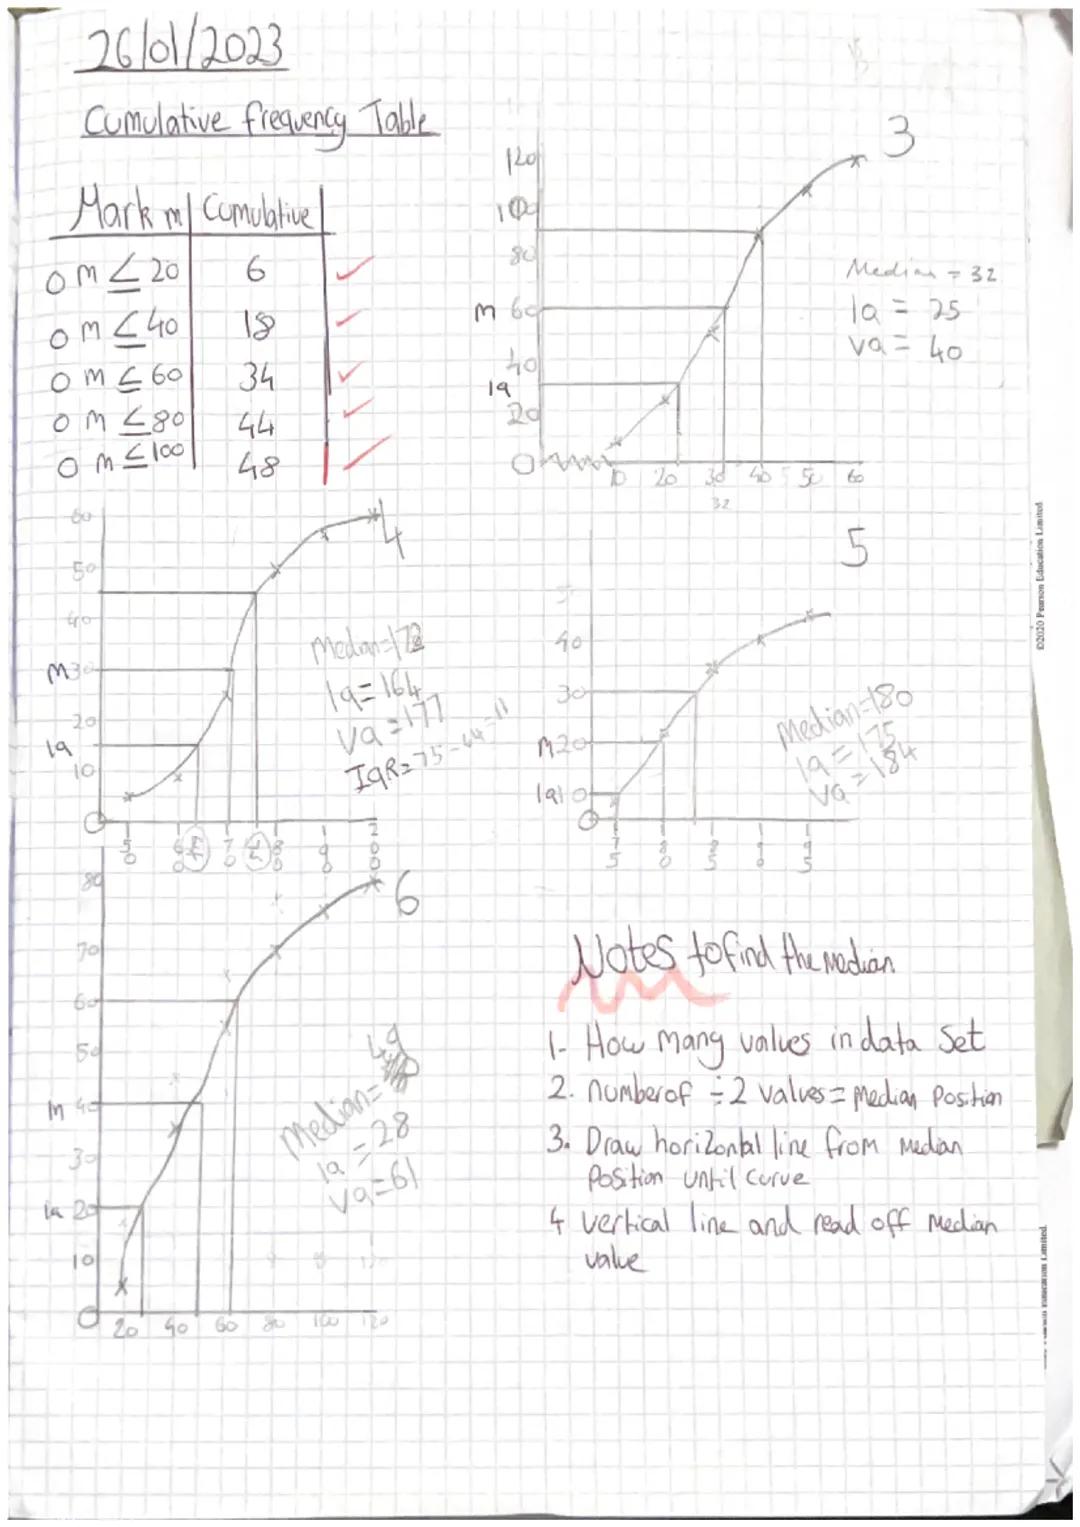 26/01/2023
Cumulative frequency Table
Mark m Cumulative
0 m ≤ 20 6
0 m ≤ 40 18
0 m ≤ 60 34
0 m ≤ 80 44
0 m ≤ 100 48
3
120
100
80
m 60
40
lq
20
0
10 20 30 40 50 60
32
Median = 32
lq = 25
vq = 40
4
60
50
40
m 30
20
lq
10
0
50 60 70 80 90 200
Median=172
lq=164
vq=177
IqR=75-64=11
5
40
30
m 20
lq 10
0
75 80 85 90 95
Median=180
lq=175
vq=184
6
80
70
60
50
m 40
30
lq 20
10
0
20 40 60 80 100 120
49
Median=
lq=28
vq=61
Notes to find the Median
1- How many values in data set
2. number of ÷2 values = Median Position
3. Draw horizontal line from Median
Position until curve
4 vertical line and read off Median
value
©2020 Pearson Education Limited